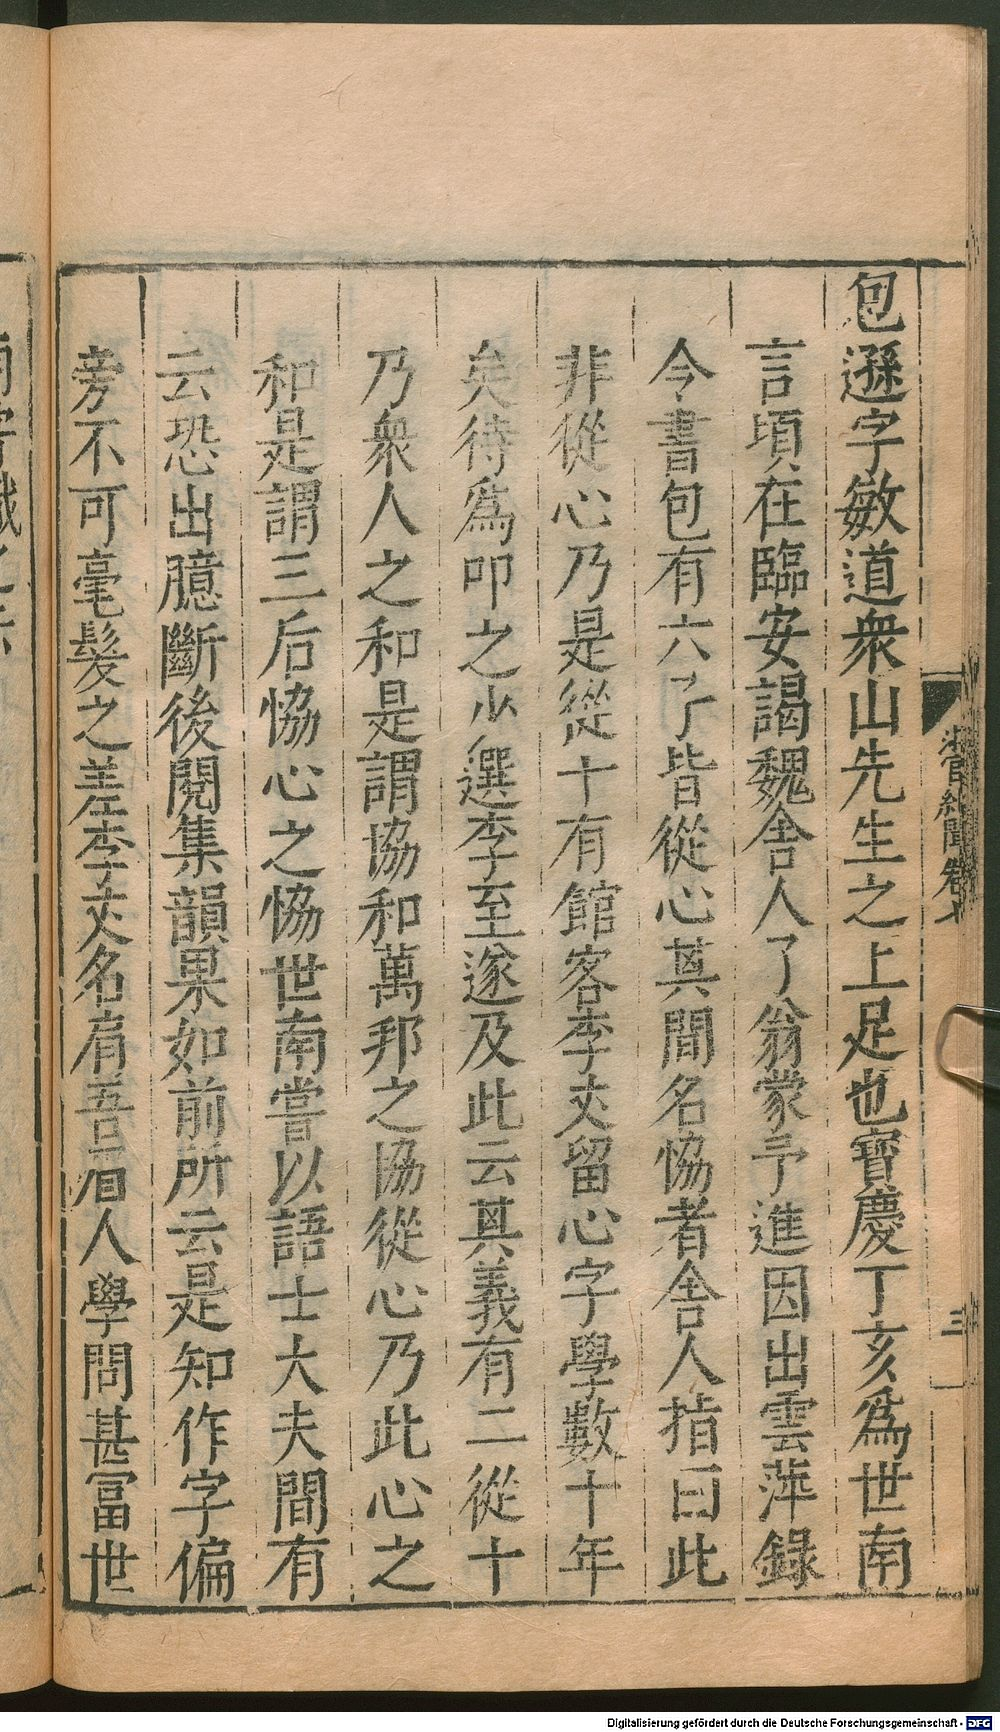 包遜字敏道衆山先生之上足也寶慶丁亥爲世南
言頃在臨安謁魏舍人了翁蒙予進因出雲萍錄
今書包有六了皆從心其間名恊者舍人指曰此
非從心乃是從十有館客李夾留心字學數十年
矣待爲叩之少選李至遂及此云其義有二從十
乃衆人之和是謂協和萬邦之協從心乃此心之
和是謂三后恊心之恊世南嘗以語士大夫間有
云恐出臆斷後閱集韻果如前所云是知作字偏
旁不可毫髮之差李夾名肩吾眉人學問甚富世
紀聞卷七
三
Digitalisierung gefördert durch die Deutsche Forschungsgemeinschaft - DFG